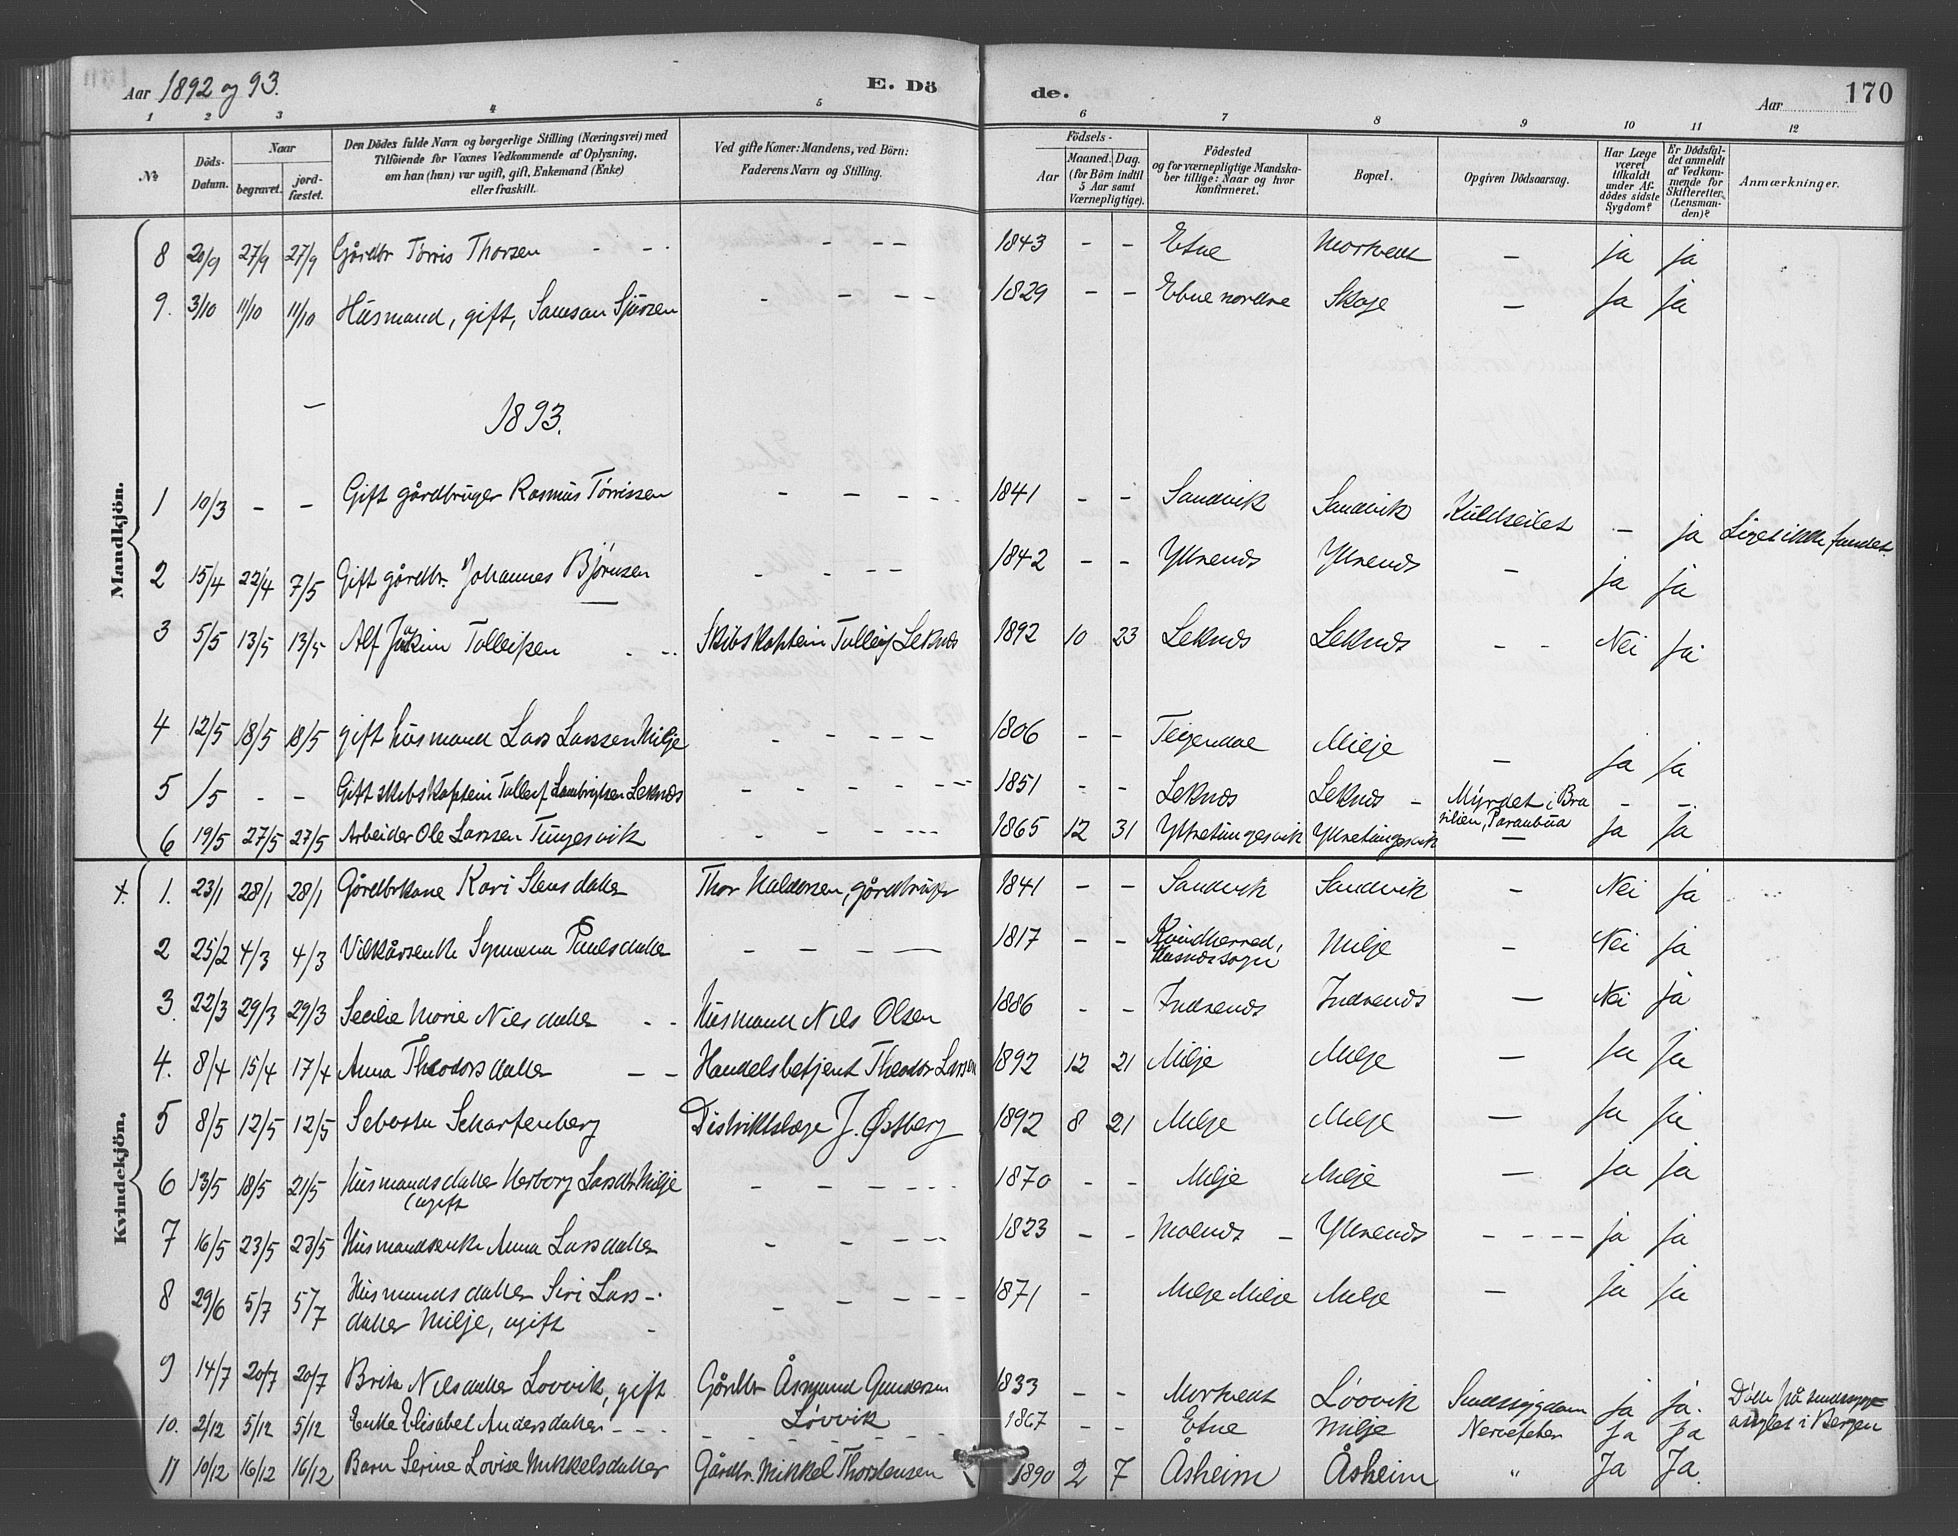 Aar 1892 og 93. E. Dö de. Aar 170
1 2 3 4 5 6 7 8 9 10 11 12
№ Döds-Datum. Naar begravet. jordfæstet. Den Dödes fulde Navn og borgerlige Stilling (Næringsvei) med Tilföiende for Voxnes Vedkommende af Oplysning, om han (hun) var ugift, gift, Enkemand (Enke) eller fraskilt. Ved gifte Koner: Mandens, ved Börn: Faderens Navn og Stilling. Födsels- Aar Maaned. Dag. (for Börn indtil 5 Aar samt Værnepligtige). Födested og for værnepligtige Mandskaber tillige: Naar og hvor konfirmeret. Bopæl. Opgiven Dödsaarsag. Har Læge været tilkaldt under Afdödes sidste Sygdom? Er Dödsfaldet anmeldt af Vedkommende for Skifteretten (Lensmanden)? Anmærkninger.
Mandkjön.
8 20/9 27/9 27/9 Gårdbr Tørris Thorsen - - - - - 1843 - - Etne Mortvedt - ja ja
9. 3/10 11/10 11/10 Husmand, gift, Samson Sjursen - - - - 1829 - - Etne nordre Skoje - ja ja
- 1893.
1 10/3 - - Gift gårdbruger Rasmus Tørrissen - - - - 1841 - - Sandvik Sandvik Kuldseilet - ja Liget ikke fundet.
2 15/4 22/4 7/5 Gift gårdbr. Johannes Bjørnsen - - - - 1842 - - Ytrenæs Ytrenæs - ja ja
3 5/5 13/5 13/5 Alf Tolleifsen - - Skibskaptein Tolleif Leknæs 1892 10 23 Leknæs Leknæs - - Nei ja
4 12/5 18/5 18/5 gift husmand Lars Larssen Milje - - - - - 1806 - - Teigendal Milje - ja ja
5 /5 - - Gift skibskaptein Tolleif Lambrigtsen Leknæs - - - - - 1851 - - Leknæs Leknæs - Myrdet i Bra - -
silien,
6 19/5 27/5 27/5 Arbeider Ole Larssen Tungesvik - - - - 1865 12 31 Ytretungesvik Ytretungesvik - ja ja
Kvindekjön.
+. 1. 23/1 28/1 28/1 Gårdbrkone Kari Stensdatter Thor Haldorsen, gårdbruger 1841 - - Sandvik Sandvik - Nei ja
2 25/2 4/3 4/3 Vilkårsenke Synneva Paulsdatter - - - - 1817 - - Kvindherred, Milje - Nei ja
Husnæs sogn
3. 22/3 29/3 29/3 Secilie Marie Nilsdatter - - Husmand Nils Olsen 1886 - - Indrenæs Indrenæs - Nei ja
4. 8/4 15/4 17/4 Anna Theodorsdatter - - Handelsbetjent Theodor Larsen 1892 12 21 Milje Milje - ja ja
5 8/5 12/5 12/5 Scharfenberg Distriktslæge J. Østberg 1892 8 21 Milje Milje - ja ja
6 13/5 18/5 21/5 Husmandsdatter Herborg Larsdtr Milje - - - - - 1870 - - Milje Milje - ja ja
(ugift
7 16/5 23/5 23/5 Husmandsenke Anna Larsdatter - - - - 1823 - - Moenæs - Ytrenæs - - - - ja ja
8 29/6 5/7 5/7 Husmandsdatter Siri Lars- - - - - - 1871 - Milje Milje Milje - ja ja
datter Milje, ugift -
9 14/7 20/7 20/7 Brita Nilsdatter Lovvik, gift Gårdbr Åsmund Gundersen 1833 - - Mortvedt Løvvik Sindssygdom ja ja. Døde på sindssyge
Løvvik asylet i Bergen
10. 2/12 5/12 5/12 Enke Elisabet Andersdatter - - - - - - - - 1867 - - Etne Milje Nervefeber ja ja
11 10/12 16/12 16/12 Barn Serine Lovise Mikkelsdatter Gårdbr. Mikkel Thorstensen 1890 2 7 Åsheim Åsheim " Ja Ja.